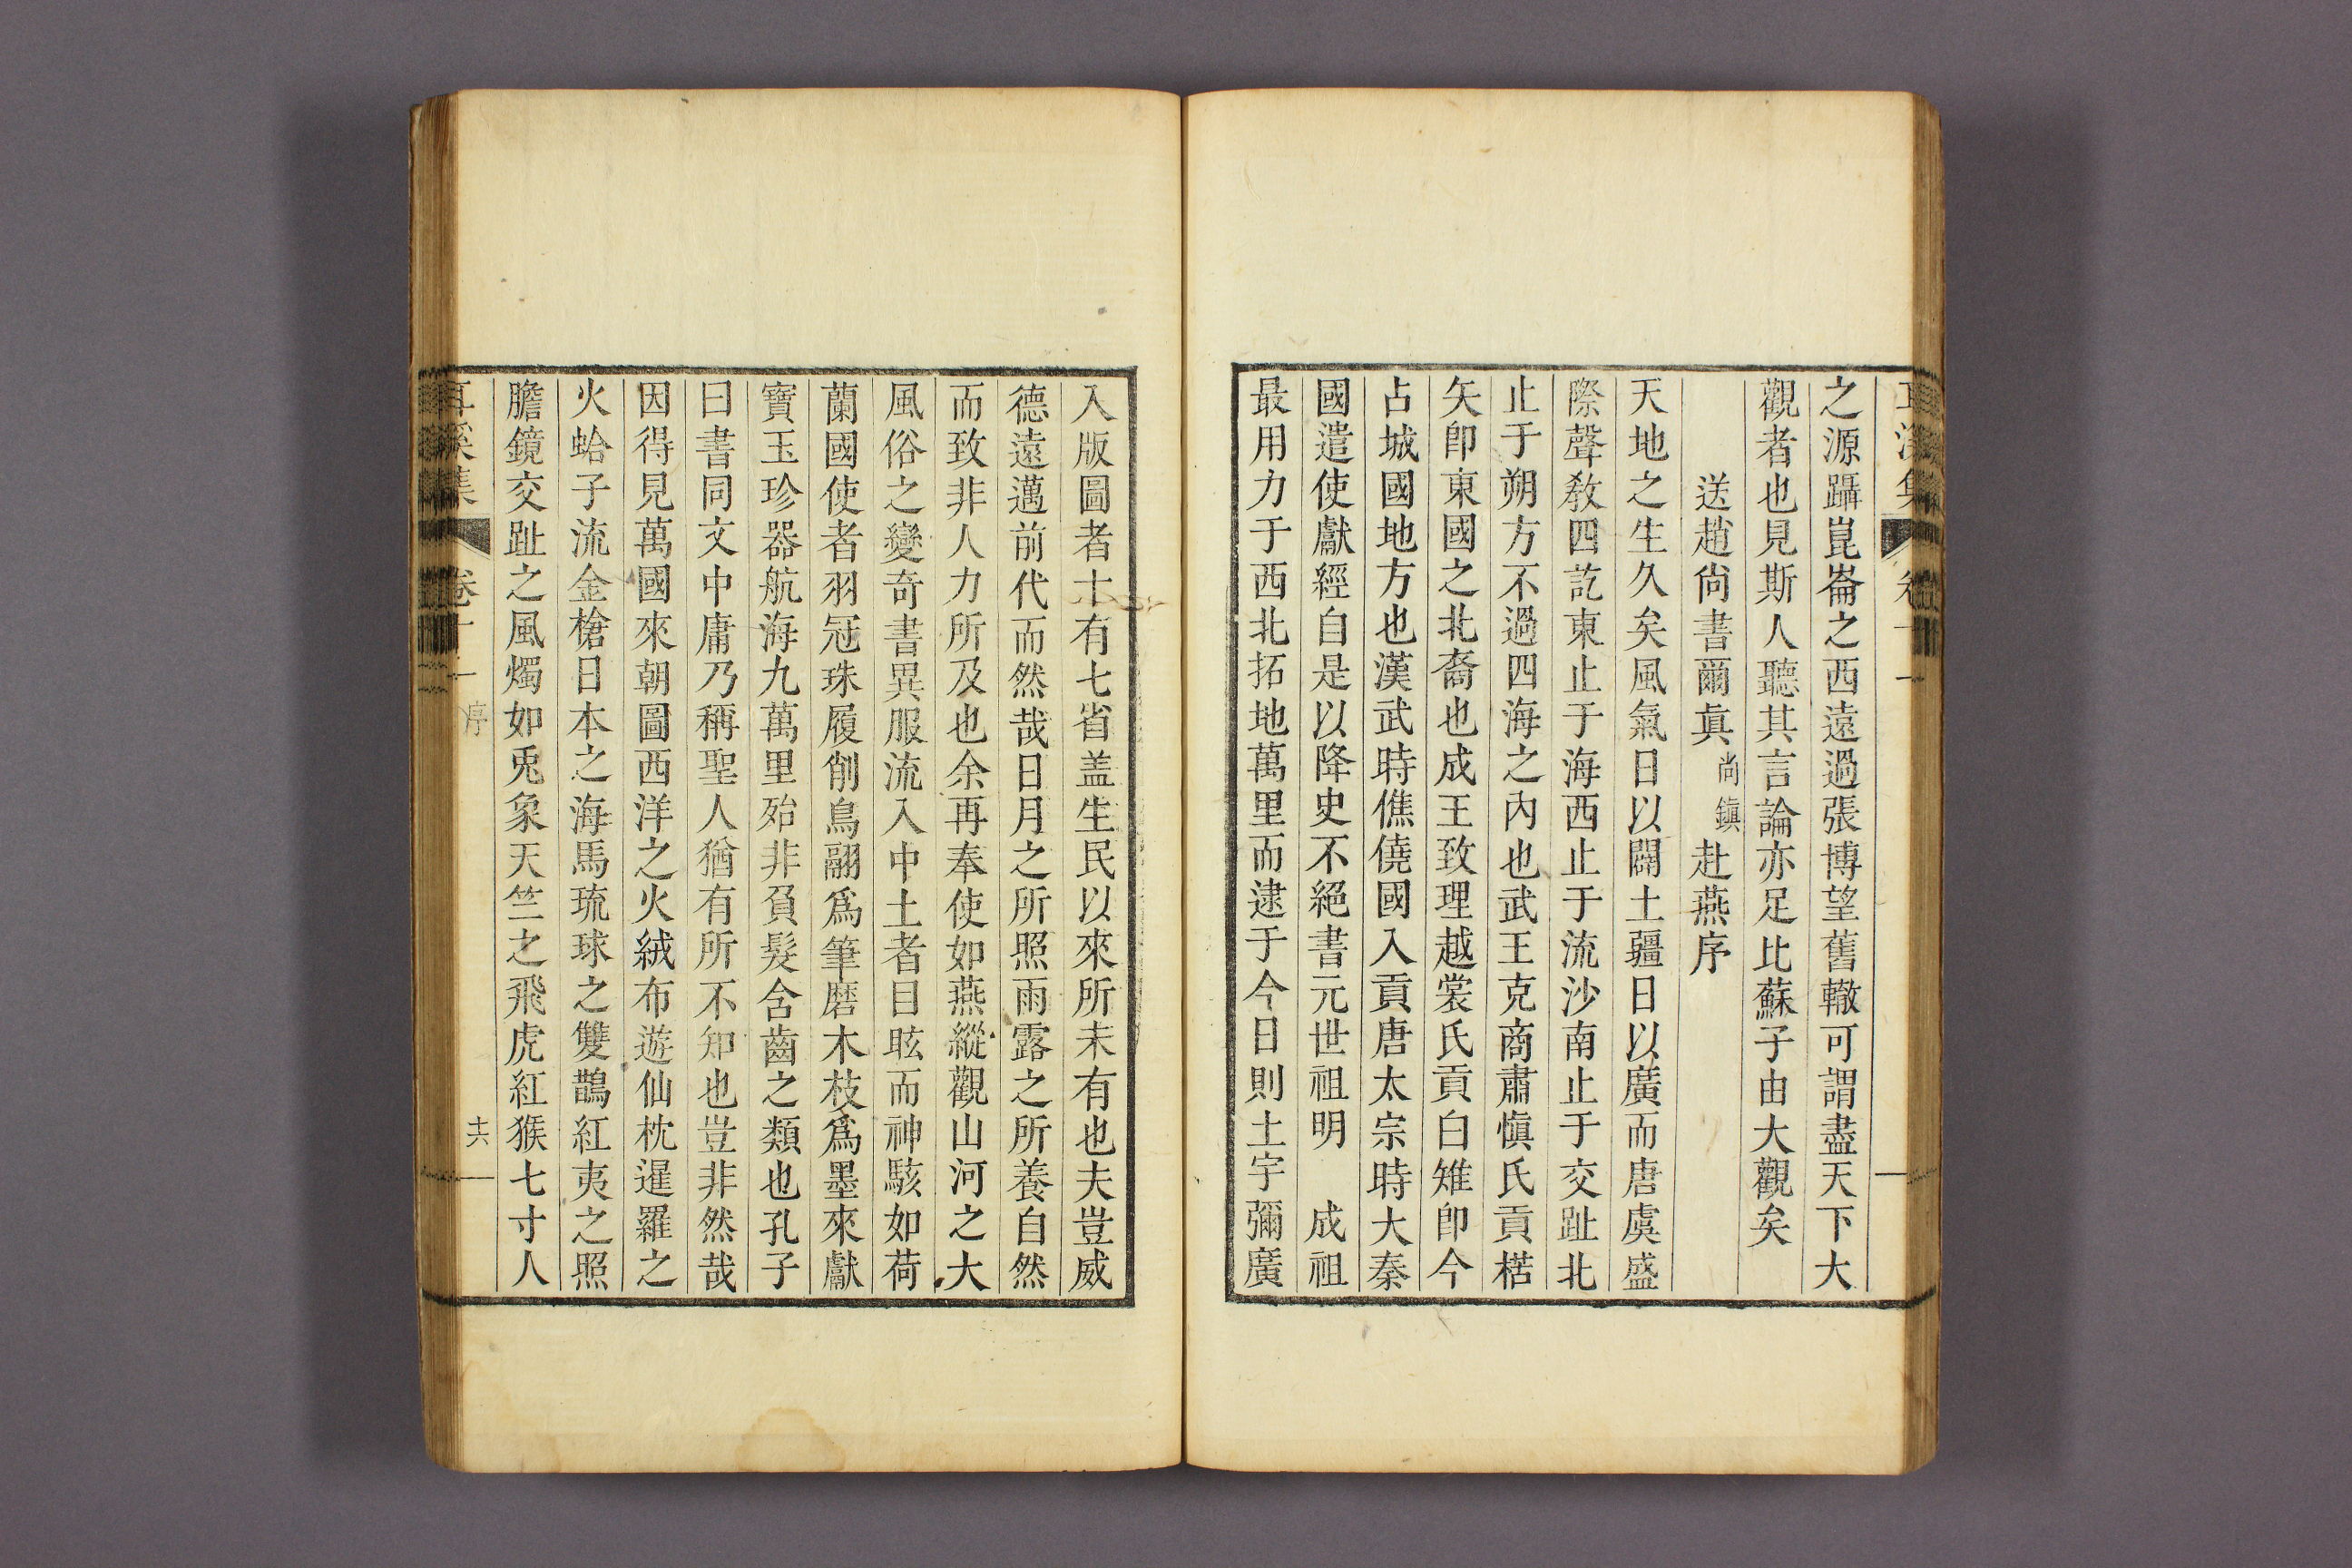 之源躡崑崙之西遠過張博望舊轍可謂盡天下大
觀者也見斯人聽其言論亦足比蘇子由大觀矣
送趙尙書爾眞尙鎭赴燕序
天地之生久矣風氣日以闢土疆日以廣而唐虞盛
際聲敎四訖東止于海西止于流沙南止于交趾北
止于朔方不過四海之內也武王克商肅愼氏貢楛
矢卽東國之北裔也成王致理越裳氏貢白雉卽今
占城國地方也漢武時僬僥國入貢唐太宗時大秦
國遣使獻經自是以降史不絕書元世祖明 成祖
最用力于西北拓地萬里而逮于今日則土宇彌廣
入版圖者十有七省盖生民以來所未有也夫豈威
德遠邁前代而然哉日月之所照雨露之所養自然
而致非人力所及也余再奉使如燕縱觀山河之大
風俗之變奇書異服流入中土者目眩而神駭如荷
蘭國使者羽冠珠履削鳥翮爲筆磨木枝爲墨來獻
寶玉珍器航海九萬里殆非負髮含齒之類也孔子
曰書同文中庸乃稱聖人猶有所不知也豈非然哉
因得見萬國來朝圖西洋之火絨布遊仙枕暹羅之
火蛤子流金槍日本之海馬琉球之雙鵲紅夷之照
膽鏡交趾之風燭如兎象天竺之飛虎紅猴七寸人
耳溪集 卷十一 序 十六